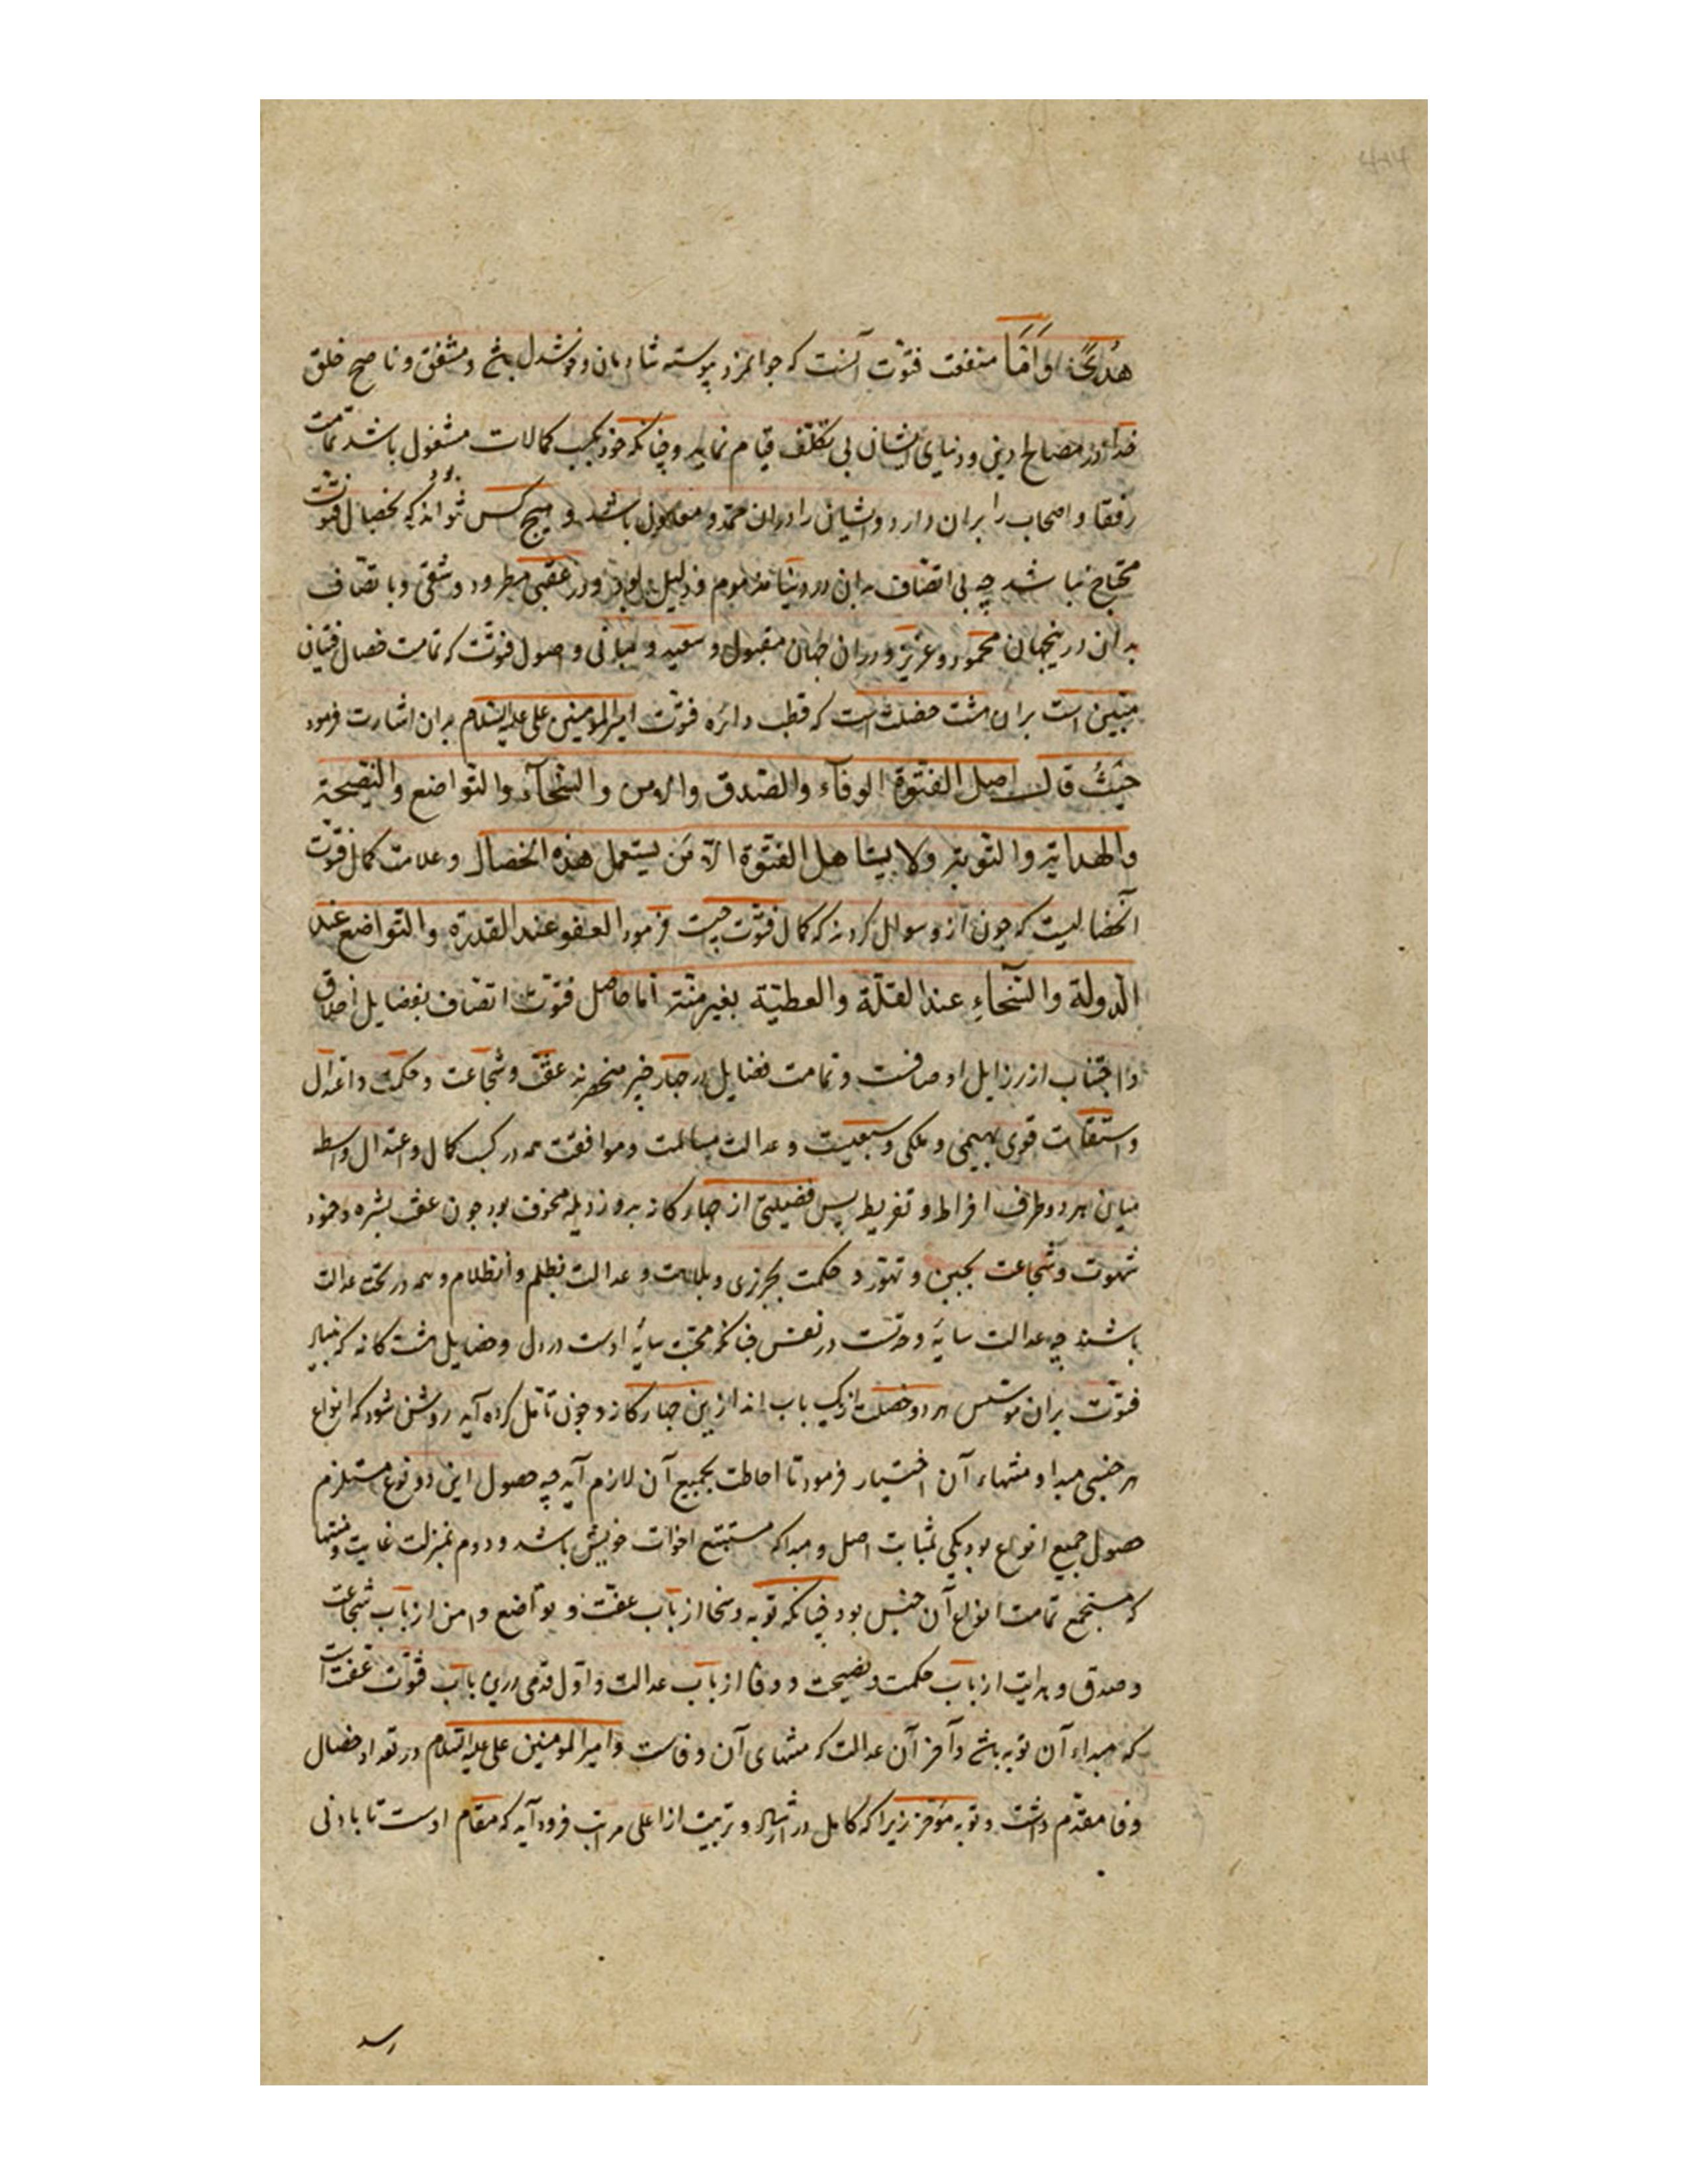 هُدًى وَاَمَّا منفعت فتوّت آنست که جوانمرد پیوسته شادمان و خوشدل باشد و مشفق و ناصح خلق
خدا و در مصالح دینی و دنیاوی ایشان بی تکلّف قیام نماید و چنانکه خود بکسب کمالات مشغول باشد تمامت
رفقا و اصحاب را بران دارد و ایشان را دران ممدّ و معاون باشد و هیچ کس نتواند بود که بخصال فتوّت
محتاج نباشد چه بی اتصاف بدان در دنیا مذموم و ذلیل بود و در عقبی مطرود و شقی و باتصاف
بدان درینجهان محمود و عزیز و دران جهان مقبول و سعید و مبانی و اصول فتوّت که تمامت خصال فتیان
مبتنی است بران هشت خصلت است که قطب دائره فتوّت امیرالمومنین علی علیه السلام بدان اشارت فرمود
حَیثُ قال اصل الفتوّة الوفآء والصّدق والامن والسّخآء والتّواضع والنّصیحة
والهدایة والتّوبة ولا یستاهل الفتوّة الّا مَن یستعمل هذه الخصال و علامت کمال فتوّت
آنخصالیست که چون ازو سوال کردند که کمال فتوّت چیست فرمود العفو عند القدرة والتّواضع عند
الدّولة والسّخاءِ عند القلّة والعطیّة بغیر منّة اما حاصل فتوّت اتصاف بفضایل اخلاق
و اجتناب از رزایل اوصافست و تمامت فضایل در چهار چیز منحصرند عفّت و شجاعت و حکمت و اعتدال
و استقامت قوی بهیمی و ملکی و سبعیست و عدالت مسالمت و موافقت همه در کسب کمال و اعتدال واسطه
میان هر دو طرف افراط و تفریط پس فضیلتی از چهارگانه بدو رذیله محفوف بود چون عفّت بشره و خمود
شهوت و شجاعت بجبن و تهوّر و حکمت بجربزی و بلاهت و عدالت بظلم و انظلام و همه در تحت عدالت
باشند چه عدالت سایهٔ وحدتست در نفس چنانکه محبّت سایهٔ اوست در دل و خصایل هشت کانه که بنیاد
فتوّت بران موسّس هر دو خصلت از یک باب اند ازین چهارکانه و چون تامّل کرده آید روشن شود که انواع
هر جنسی مبدا و منتهاء آن اختیار فرمود تا احاطت بجمیع آن لازم آید چه حصول این دو نوع مستلزم
حصول جمیع انواع بود یکی بمثابت اصل و مبدا که مستتبع اخوات خویش باشد و دوم بمنزلت غایت و منتها
که مستجمع تمامت انواع آن جنس بود چنانکه توبه و سخا از باب عفّت و تواضع و امن از باب شجاعت
و صدق و هدایت از باب حکمت و نصیحت و وفا از باب عدالت و اوّل قدمی درین باب فتوّت عفّت است
که مبداء آن توبه باشد و آخر آن عدالت که منتهای آن وفاست و امیرالمومنین علی علیه السلام در تعداد خصال
وفا مقدّم داشت و توبه مؤخر زیرا که کامل در ارشاد و تربیت از اعلی مراتب فرود آید که مقام اوست تا بادنی
رسد